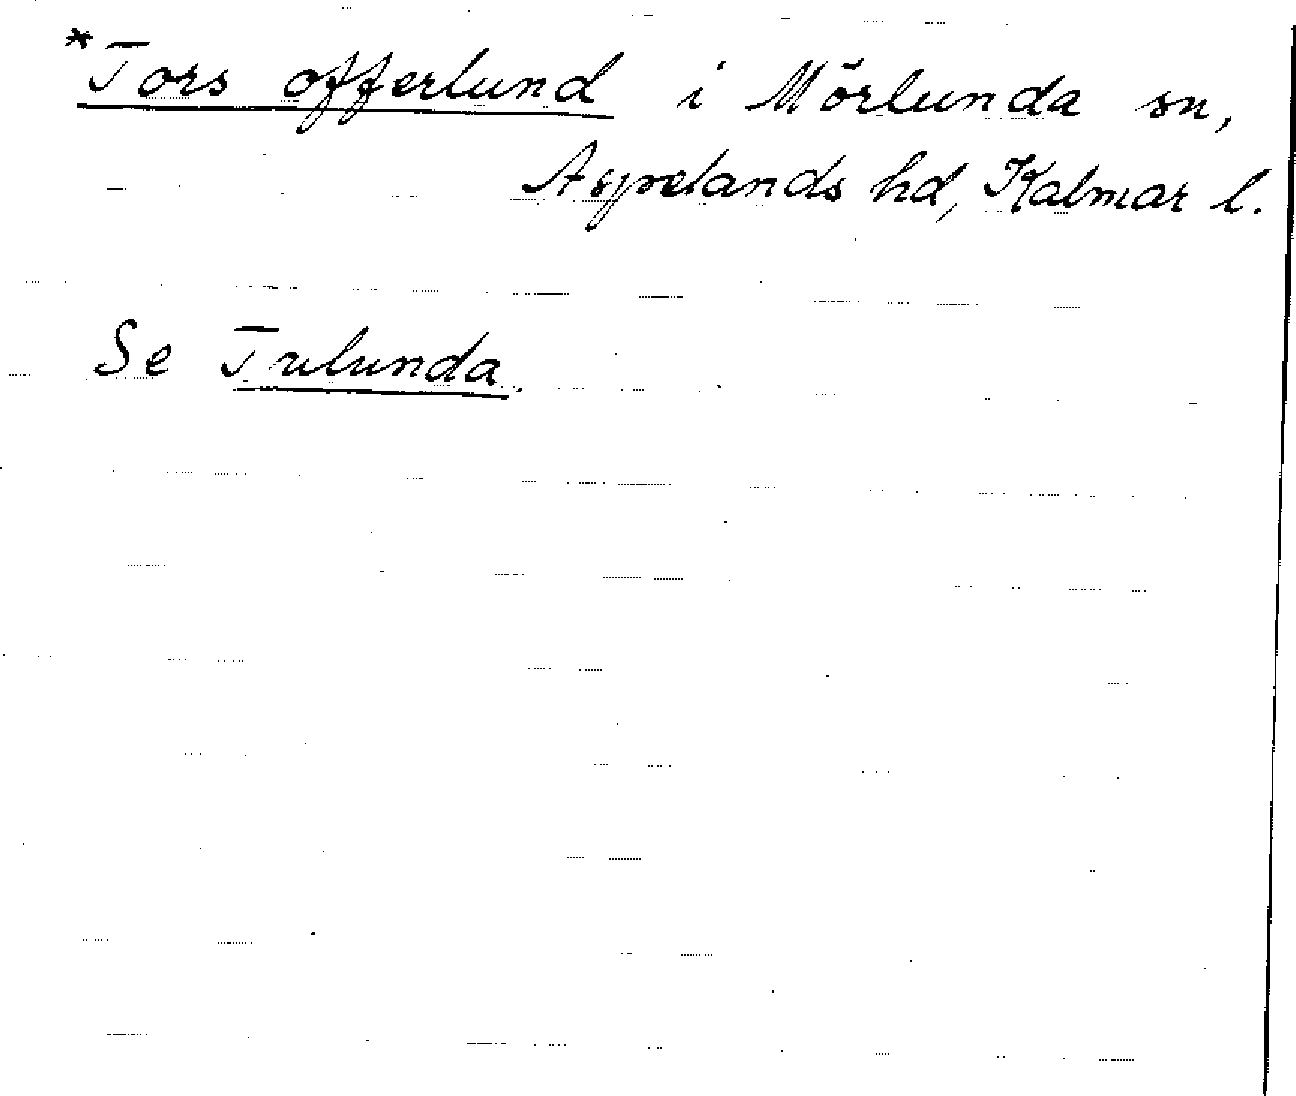 *Tors offerlund i Mörlunda sn,
Aspelands hd, Kalmar l.
Se Trulunda.